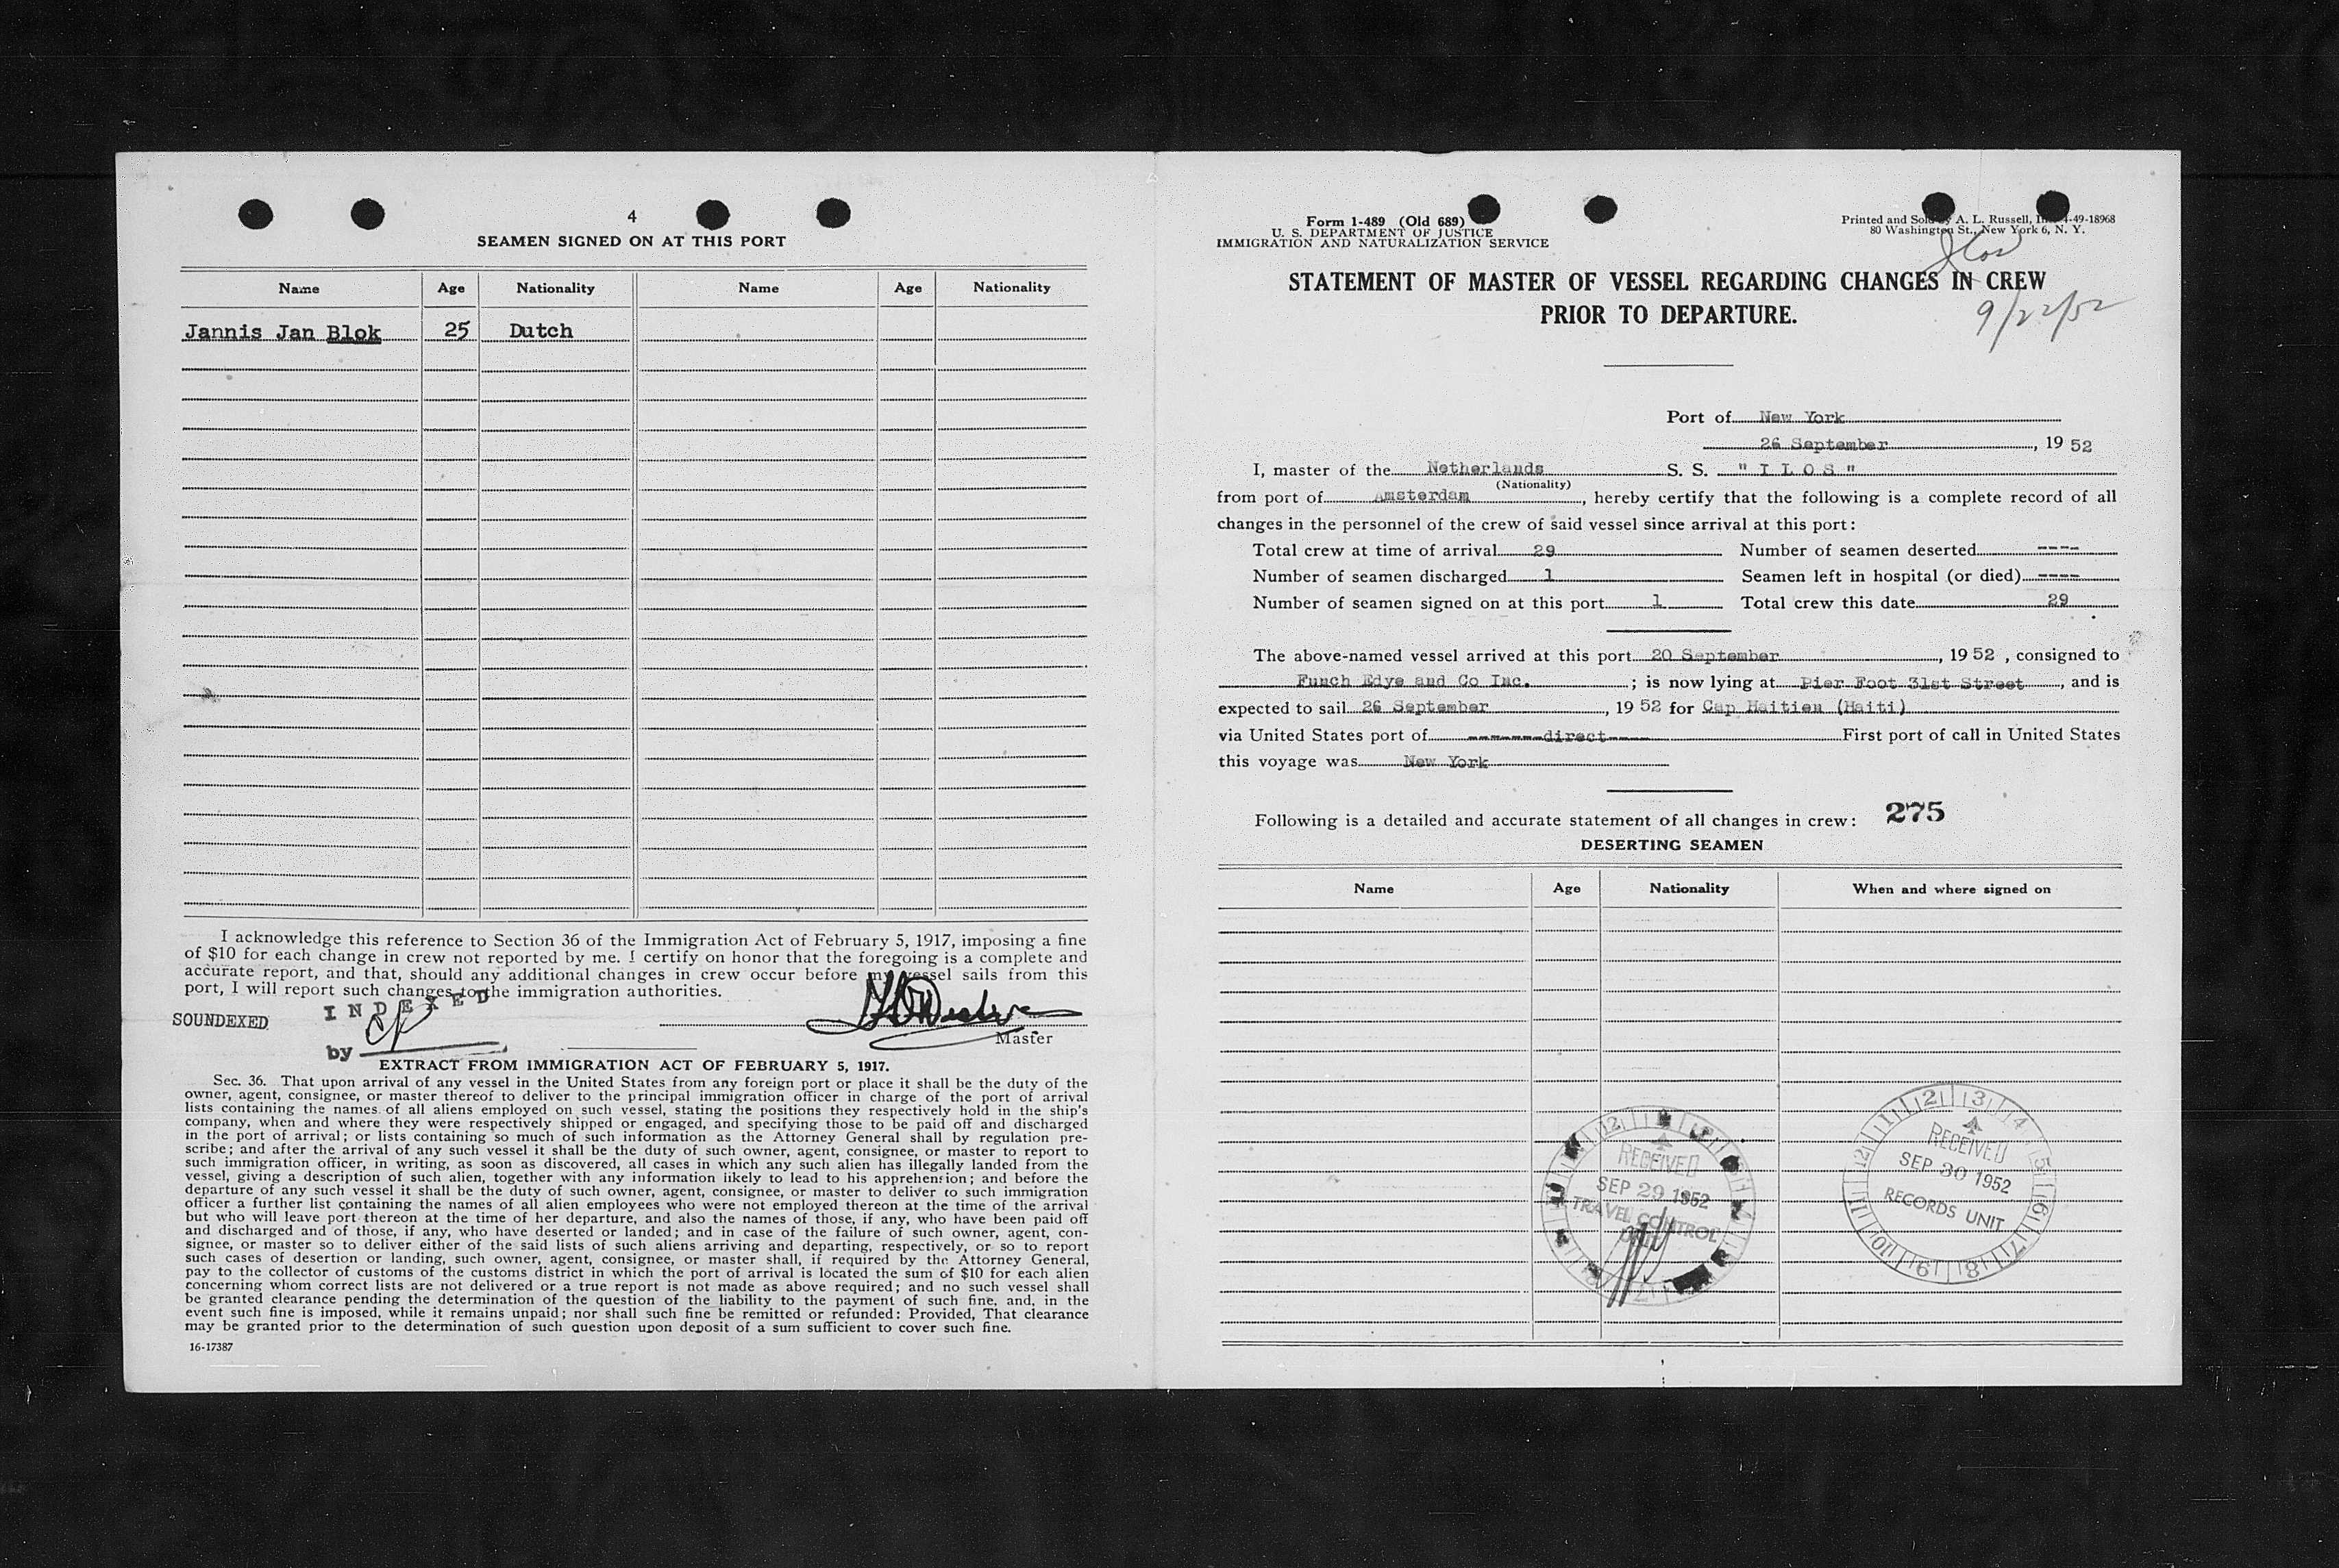 4
SEAMEN SIGNED ON AT THIS PORT
Name Age Nationality Name Age Nationality
Jannis Jan Blok 25 Dutch
I acknowledge this reference to Section 36 of the Immigration Act of February 5, 1917, imposing a fine
of $10 for each change in crew not reported by me. I certify on honor that the foregoing is a complete and
accurate report, and that, should any additional changes in crew occur before my vessel sails from this
port, I will report such changes to the immigration authorities.
INDEXED
SOUNDEXED
Master
by
EXTRACT FROM IMMIGRATION ACT OF FEBRUARY 5, 1917.
Sec. 36. That upon arrival of any vessel in the United States from any foreign port or place it shall be the duty of the
owner, agent, consignee, or master thereof to deliver to the principal immigration officer in charge of the port of arrival
lists containing the names of all aliens employed on such vessel, stating the positions they respectively hold in the ship's
company, when and where they were respectively shipped or engaged, and specifying those to be paid off and discharged
in the port of arrival; or lists containing so much of such information as the Attorney General shall by regulation pre-
scribe; and after the arrival of any such vessel it shall be the duty of such owner, agent, consignee, or master to report to
such immigration officer, in writing, as soon as discovered, all cases in which any such alien has illegally landed from the
vessel, giving a description of such alien, together with any information likely to lead to his apprehension; and before the
departure of any such vessel it shall be the duty of such owner, agent, consignee, or master to deliver to such immigration
officer a further list containing the names of all alien employees who were not employed thereon at the time of the arrival
but who will leave port thereon at the time of her departure, and also the names of those, if any, who have been paid off
and discharged and of those, if any, who have deserted or landed; and in case of the failure of such owner, agent, con-
signee, or master so to deliver either of the said lists of such aliens arriving and departing, respectively, or so to report
such cases of desertion or landing, such owner, agent, consignee, or master shall, if required by the Attorney General,
pay to the collector of customs of the customs district in which the port of arrival is located the sum of $10 for each alien
concerning whom correct lists are not delivered or a true report is not made as above required; and no such vessel shall
be granted clearance pending the determination of the question of the liability to the payment of such fine, and, in the
event such fine is imposed, while it remains unpaid; nor shall such fine be remitted or refunded: Provided, That clearance
may be granted prior to the determination of such question upon deposit of a sum sufficient to cover such fine.
16-17387
Form I-489 (Old 689)
U. S. DEPARTMENT OF JUSTICE
IMMIGRATION AND NATURALIZATION SERVICE
Printed and Sold by A. L. Russell, Inc. 4-49-18968
80 Washington St., New York 6, N. Y.
Ilos
STATEMENT OF MASTER OF VESSEL REGARDING CHANGES IN CREW
PRIOR TO DEPARTURE.
9/22/52
Port of New York
26 September, 1952
I, master of the Netherlands S. S. "ILOS"
(Nationality)
from port of Amsterdam, hereby certify that the following is a complete record of all
changes in the personnel of the crew of said vessel since arrival at this port:
Total crew at time of arrival 29 Number of seamen deserted ----
Number of seamen discharged 1 Seamen left in hospital (or died) ----
Number of seamen signed on at this port 1 Total crew this date 29
The above-named vessel arrived at this port 20 September, 1952, consigned to
Funch Edye and Co Inc.; is now lying at Pier Foot 31st Street, and is
expected to sail 26 September, 1952 for Cap Haitien (Haiti)
via United States port of ------direct---- First port of call in United States
this voyage was New York
Following is a detailed and accurate statement of all changes in crew: 275
DESERTING SEAMEN
Name Age Nationality When and where signed on
RECEIVED
SEP 29 1952
TRAVEL CONTROL
RECEIVED
SEP 30 1952
RECORDS UNIT